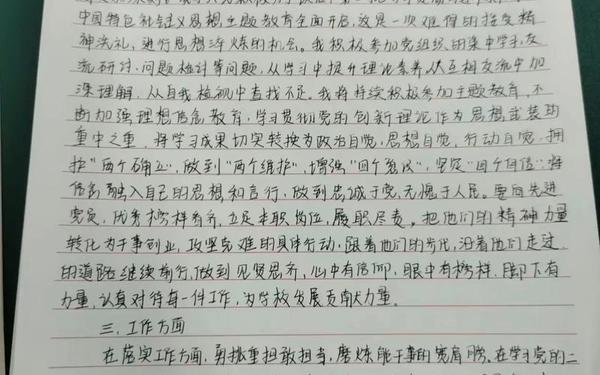 中国特色社会主义思想主题教育全面开启,这是一次难得的接受精
神洗礼,进行思想淬炼的机会。我积极参加党组织的集中学习,交
流研讨、问题检讨等问题,从学习中提升理论素养,从互相交流中加
深理解,从自我检视中查找不足。我将持续积极参加主题教育,不
断加强理想信念教育,学习贯彻党的创新理论作为思想武装的
重中之重,将学习成果切实转换为政治自觉,思想自觉,行动自觉,拥
护"两个确立",做到"两个维护",增强"四个意识",坚定"四个自信",将
信念融入自己的思想和言行,做到忠诚于党,无愧于人民。要向先进
党员,优秀榜样看齐,立足本职岗位,履职尽责。把他们的精神力量
转化为干事创业,攻坚克难的具体行动,跟着他们的步伐,沿着他们走过
的道路继续前行,做到见贤思齐,心中有信仰,眼中有榜样,脚下有
力量,认真对待每一件工作,为学校发展贡献力量。
三、工作方面
在落实工作方面,勇挑重担敢担当,磨炼能干事的宽肩膀。在学习党的二